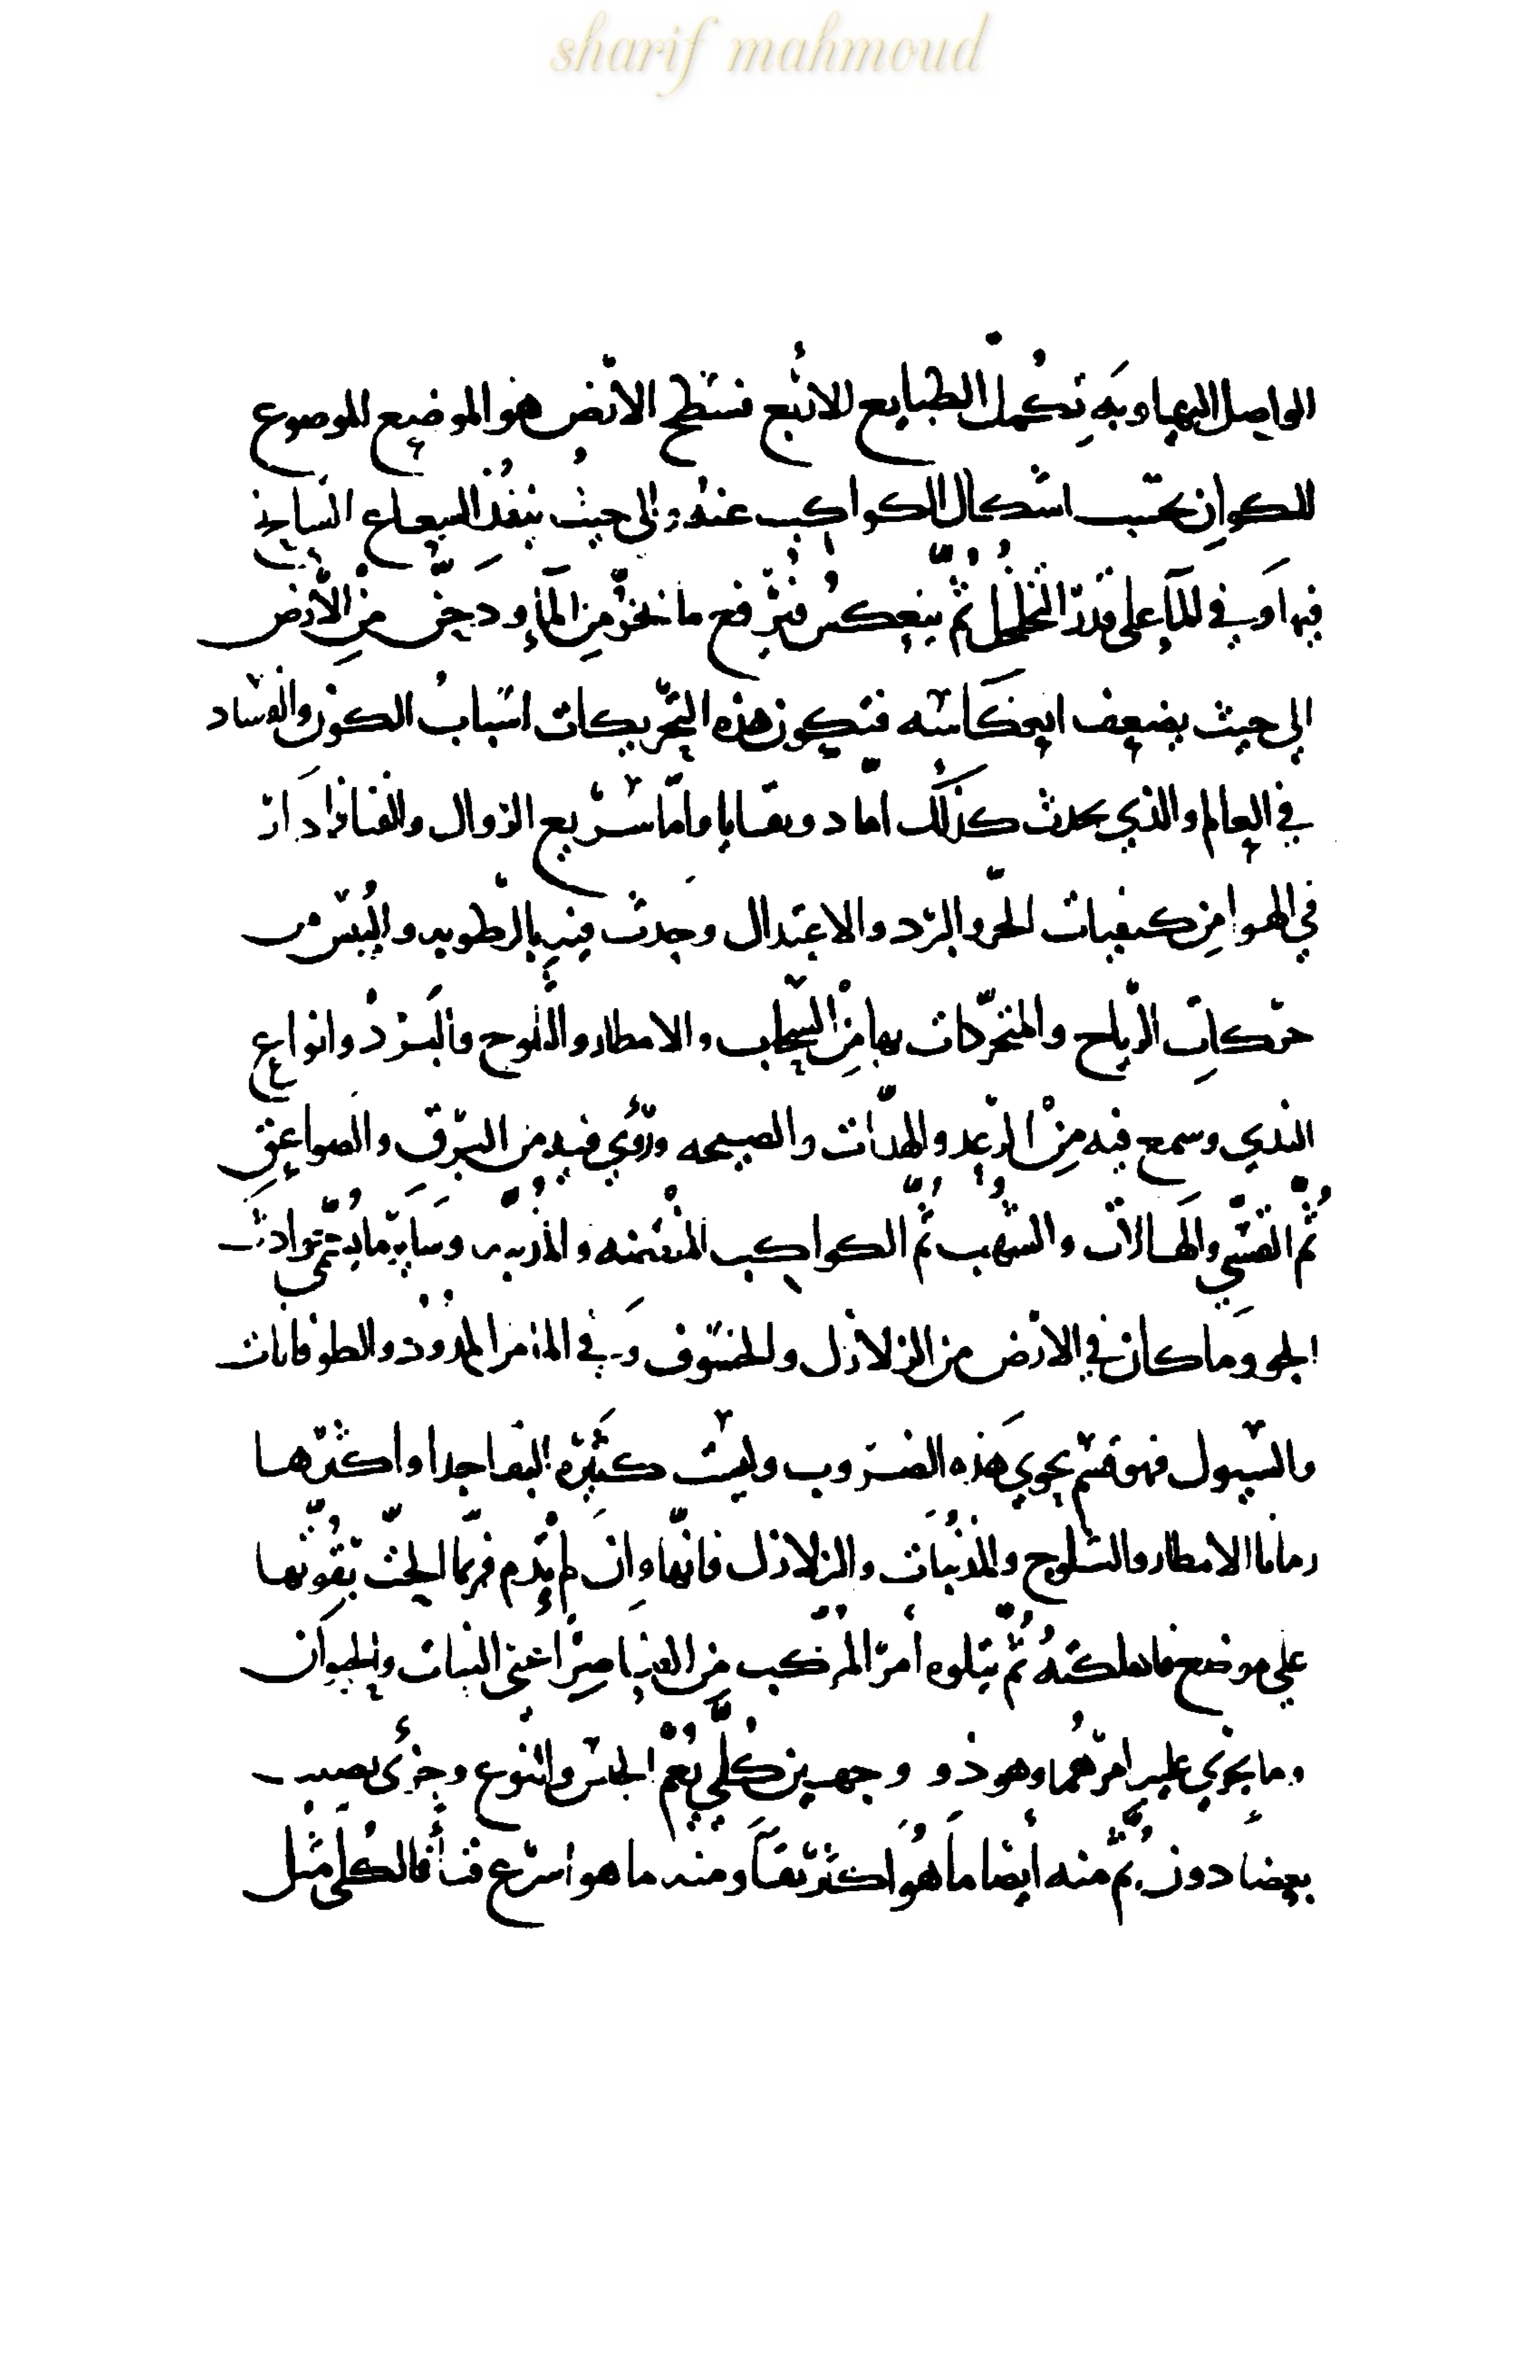 sharif mahmoud
الواصل اليها وبه تكمل الطبايع الاربع فسطح الارض هو الموضع الموضوع
للكواين بحسب اشكال الكواكب عنده والى حيث ينفذ الشعاع السايح
فيها وفي المآء على قدر التخلخل ثُمّ ينعكسُ فيرفع ما تبخّر مِن المآء ودخّن مِن الأرض
الى حيث يضعف انعكاسه فتكون هذه التحريكات اسبابُ الكون والفساد
في العالم والذي يحدث كذلك امّا ذو بقا واما سريع الزوال والفنا اذا دار
في الهوا مِن كيفيات الحرّ والبرد والاعتدال وحدث فيه بالرطوبه واليُبس من
حركات الرياح والمتحركات بها مِن السّحاب والامطار والثلوج والبَرَد وانواع
الندى وسمع فيه مِنْ الرعد والهدّات والصيحه ورُؤي فيه من البرق والصواعق
ثُمّ القسّي والهالات والشهب ثُمّ الكواكب المنقضه والمذنّبه وساير ما يُسمّى حوادث
الجو وما كان في الارض من الزلازل والخسوف وفي الما من المدود والطوفانات
والسيول فهو قسم يحوي هذه الضروب وليست كثيره البقا جدا واكثرها
زمانا الامطار والثلوج والمذنبات والزلازل فانّها وان لم تدم فربّما الحّت بقُوّتها
على موضع فاهلكتهُ ثُمّ يتلوه أمر المُركب مِن العناصر اعني النبات والحيوان
وما يجري عليه امرهُما وهو ذو وجهين كُلّي يعُمّ الجنس والنوع وجزئ يصيب
بعضا دون ثُمّ منه أيضا ما هُو اكثر بقآ ومنه ما هو اسرع فنآ فالكُلّي مثل